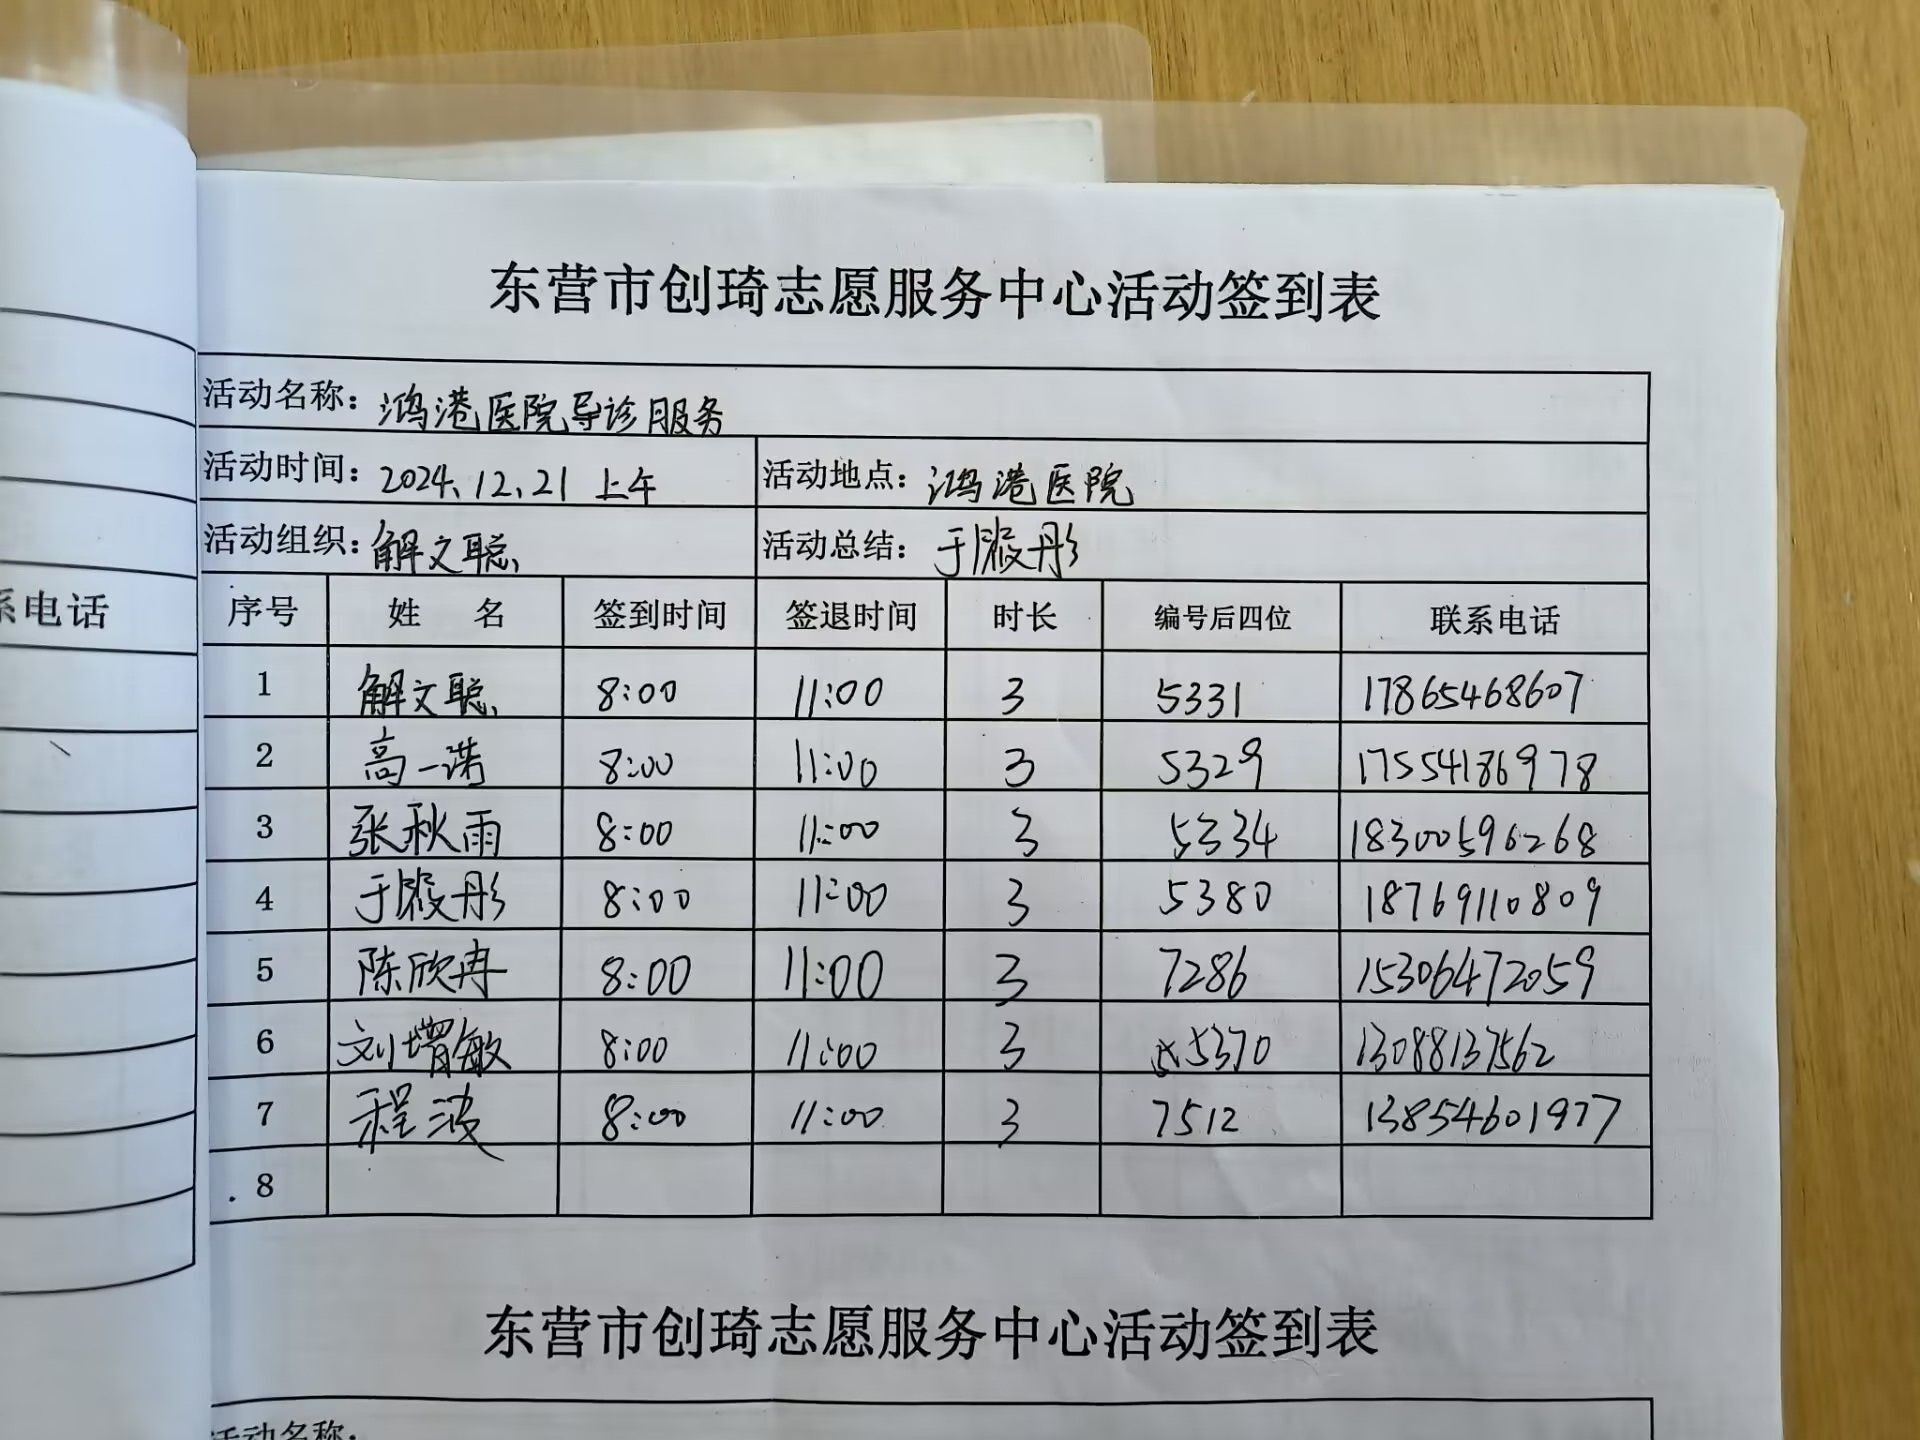 东营市创琦志愿服务中心活动签到表
活动名称：鸿港医院导诊服务
活动时间：2024、12、21 上午 活动地点：鸿港医院
活动组织：解文聪 活动总结：于殿彤
系电话
序号 姓 名 签到时间 签退时间 时长 编号后四位 联系电话
1 解文聪 8:00 11:00 3 5331 17865468607
2 高一诺 8:00 11:00 3 5329 17554186978
3 张秋雨 8:00 11:00 3 5334 18300596268
4 于殿彤 8:00 11:00 3 5380 18769110809
5 陈欣冉 8:00 11:00 3 7286 15306472059
6 刘增敏 8:00 11:00 3 5370 13088137562
7 程波 8:00 11:00 3 7512 13854601977
8
东营市创琦志愿服务中心活动签到表
活动名称：